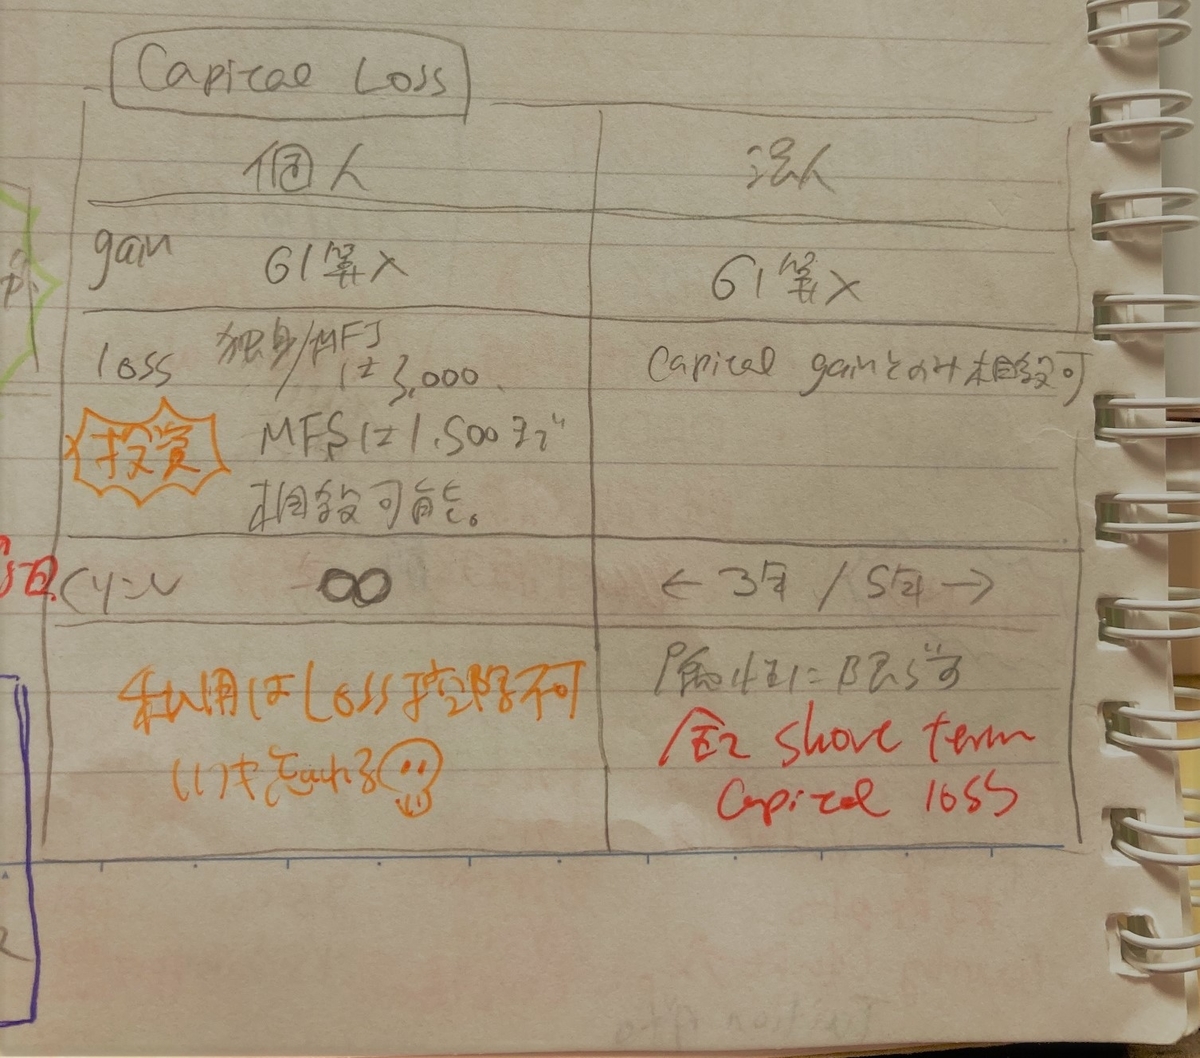 Capital Loss
個人
法人
gain
GI算入
GI算入
loss
独身/MFJ
は3,000
Capital gainとのみ相殺可
投資
MFSは1.500まで
相殺可能。
∞
← 3年 / 5年 →
私用はLoss控除不可
いつも忘れる
に限らず
全て short term
Capital loss